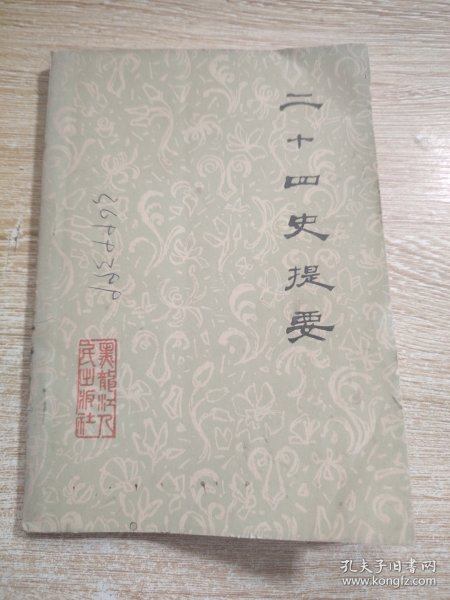 二十四史提要
黑龍江人
民出版社
孔夫子旧书网
www.kongfz.com